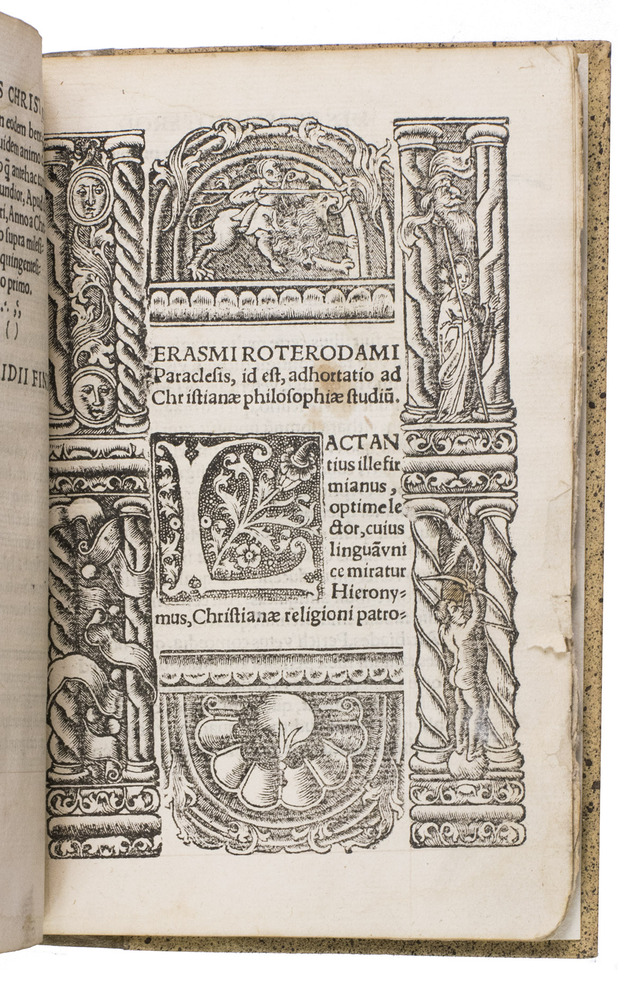 S CHRIST
n eodem
uidem animo
o q̃ antehac
undior, Apud
ri, Anno a Chr
o supra mille
quingente
o primo.
IDII FIN
ERASMI ROTERODAMI
Paraclesis, id est, adhortatio ad
Christianæ philosophiæ studiũ.
LACTAN
tius ille fir
mianus,
optime le
ctor, cuius
linguã vni
ce miratur
Hierony-
mus, Christianæ religioni patro-